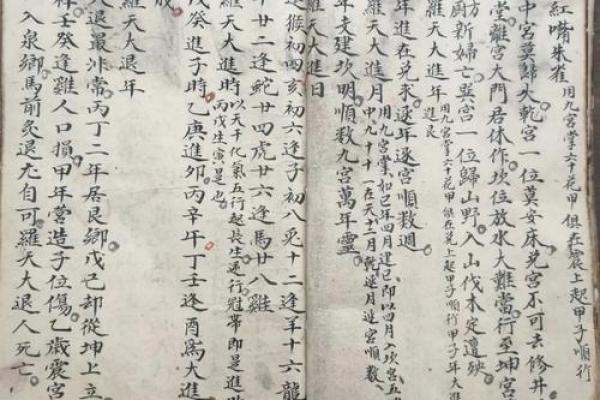 紅嘴朱雀 用九宮掌六十花甲 俱在震上起甲子順行
中宮莫歸火乾宮一位莫安床兑宮不可去修井
堂離宮大門君休作坎位放水大難當行至坤宮
廚新婦亡巽宮一位歸山野入山伐木定遭殃
羅天大進年 進艮 用九宮掌六十花甲俱在兑上起甲子順行甲子年大進
年進在兑来逐年逐宮順数週
羅天大進月 用九宮掌如巳年四月建巳即以四月入坎宮五
中九十十一在天十二月乾逐月逐宮順数
年支建坎明順数九宮萬年靈
羅天大進日
逢猴初四亥初六逢子初八兎十二逢羊十六龍
十廿二蛇廿四虎廿六逢馬廿八雞
羅天大進時 以天干化氣五行起長生逓行冠帶即是進
丙戊生寅是也
戊癸進子時乙庚進卯丙辛午丁壬逢酉爲大進
羅天大退年
入退最非常丙丁二年居艮鄉戊己却從坤上立
梓壬癸逢雞人口損甲年營造子位傷乙歲震宮
入泉鄉馬前炙退尤自可羅天大退人死亡